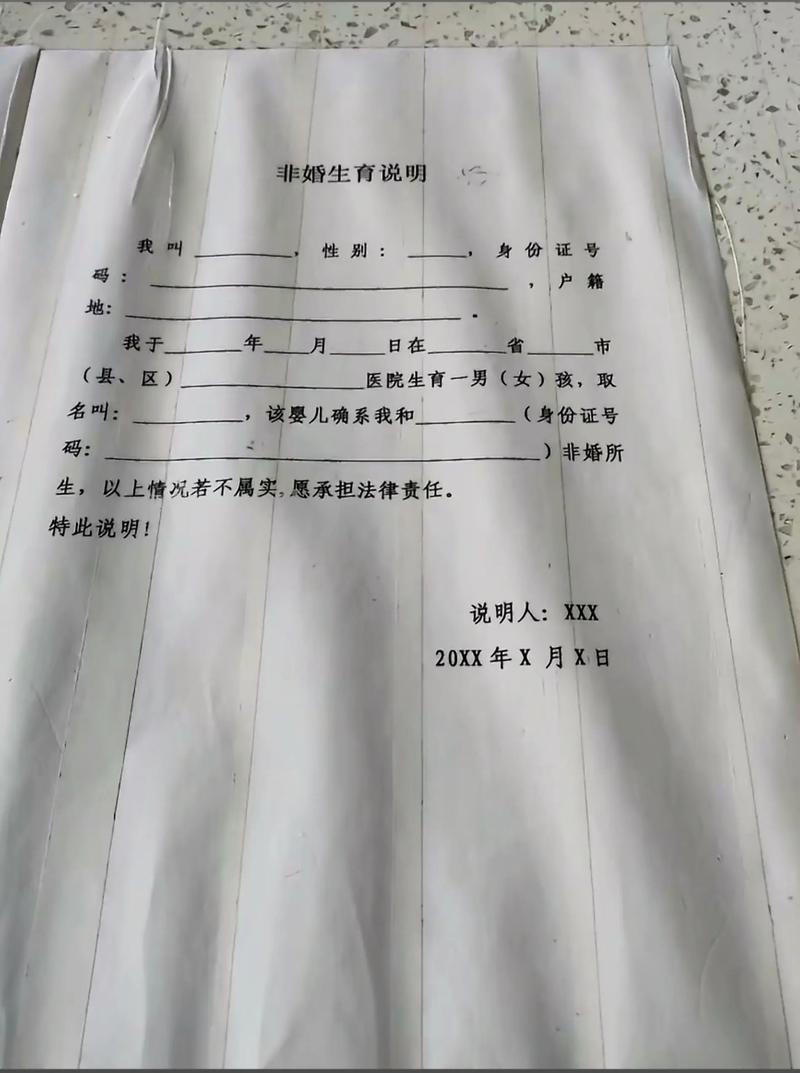 非婚生育说明
我叫________，性别：____，身份证号
码：______________________________，户籍
地：____________________________。
我于______年____月____日在______省_____市
（县、区）______________医院生育一男（女）孩，取
名叫：________，该婴儿确系我和________（身份证号
码：__________________________________）非婚所
生，以上情况若不属实，愿承担法律责任。
特此说明！
说明人：XXX
20XX年X月X日